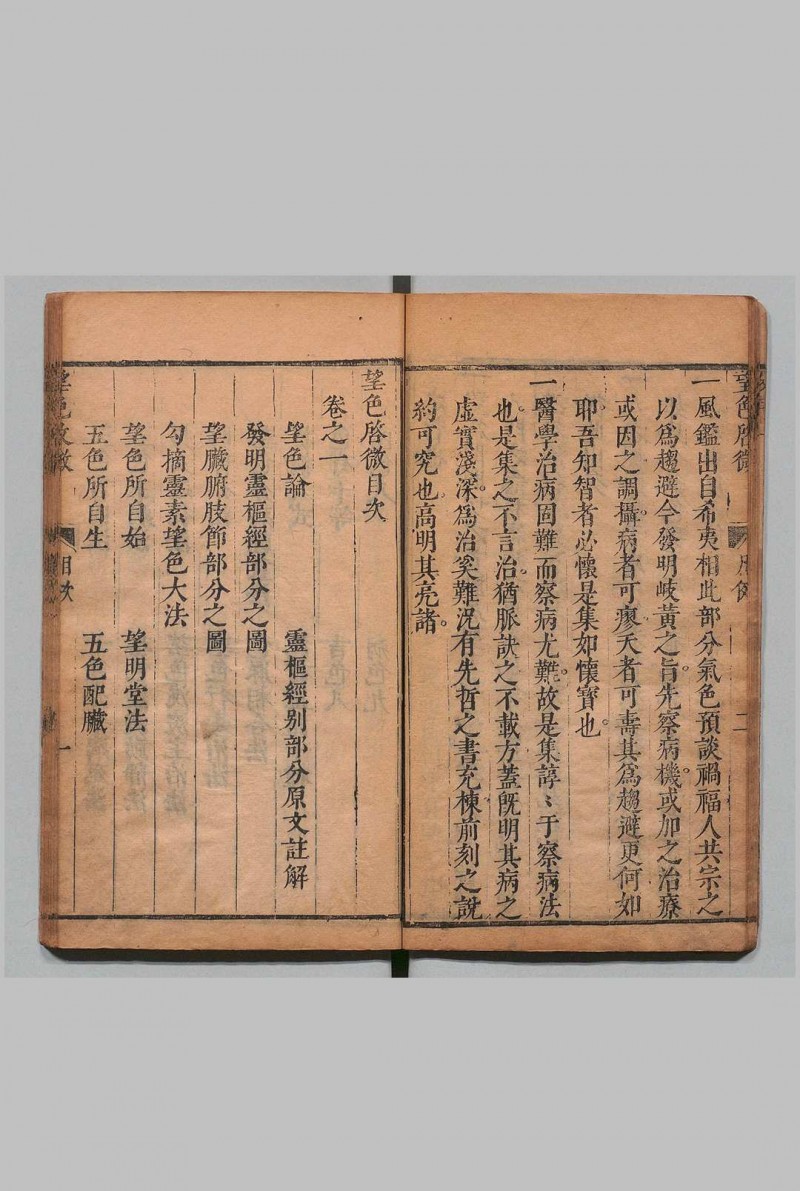 望色啓微
凡例
二
一風鑑出自希夷相此部分氣色預談禍福人共宗之
以爲趨避今發明岐黃之旨先察病機或加之治療
或因之調攝病者可瘳夭者可壽其爲趨避更何如
耶吾知智者必懷是集如懷寶也
一醫學治病固難而察病尤難故是集諄〻于察病法
也是集之不言治猶脈訣之不載方蓋旣明其病之
虛實淺深爲治奚難況有先哲之書充棟前刻之說
約可究也高明其亮諸
望色啓微目次
卷之一
望色論　靈樞經別部分原文註解
發明靈樞經部分之圖
望臟腑肢節部分之圖
勾摘靈素望色大法
望色所自始　望明堂法
五色所自生　五色配臟
望色啟微
目次
一